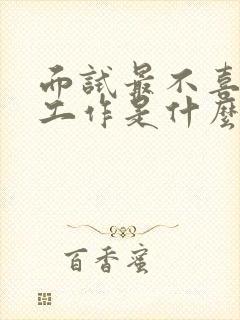 而試最不喜
工作是什麼
百香蜜